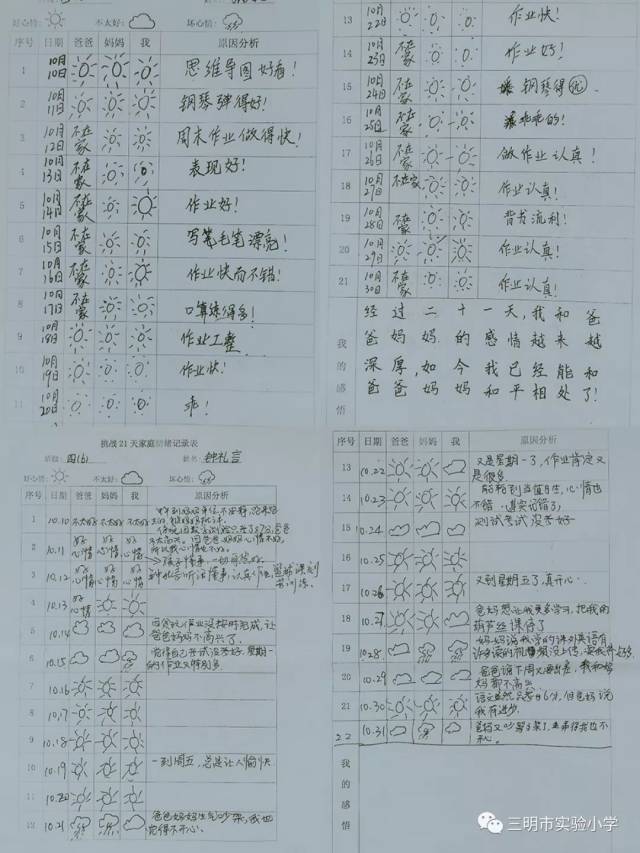 好心情: 不太好: 坏心情:
序号 日期 爸爸 妈妈 我 原因分析
1 10月10日 思维导图好看!
2 10月11日 钢琴弹得好!
3 10月12日 不在家 周末作业做得快!
4 10月13日 不在家 表现好!
5 10月14日 不在家 作业好!
6 10月15日 不在家 写笔毛笔漂亮!
7 10月16日 不在家 作业快而不错!
8 10月17日 不在家 口算练得多!
9 10月18日 作业工整
10 10月19日 作业快!
11 10月20日 乖!
13 10月22日 作业快!
14 10月23日 不在家 作业好!
15 10月24日 不在家 钢琴得优!
16 10月25日 不在家 乖乖的!
17 10月26日 不在家 做作业认真!
18 10月27日 不在家 作业认真!
19 10月28日 不在家 背书流利!
20 10月29日 作业认真!
21 10月30日 不在家 作业认真!
我的感悟
经过二十一天,我和爸
爸妈妈的感情越来越
深厚,如今我已经能和
爸爸妈妈和平相处了!
挑战21天家庭情绪记录表
班级: 四(6) 姓名: 钟礼言
好心情: 不太好: 坏心情:
序号 日期 爸爸 妈妈 我 原因分析
1 10.10 不太好 不太好 不太好
2 10.11 好心情 好心情 好心情
3 10.12 好心情 好心情 好心情
4 10.13 好心情
5 10.14 作业没按时完成,让
爸爸妈妈不高兴了.
6 10.15 觉得自己考试没考好.星期一
的作业又特别多
7 10.16
8 10.17
9 10.18
10 10.19 一到周五,总是让人愉快
11 10.20
12 10.21 爸爸妈妈生气吵架,我也
觉得不开心.
序号 日期 爸爸 妈妈 我 原因分析
13 10.22 又是星期一了,作业肯定又
是很多
14 10.23 心情也
不错
15 10.24 测试考试没考好
16 10.25
17 10.26 又到星期五了,真开心.
18 10.27 爸妈想让我更多学习,把我的
葫芦丝课停了
19 10.28 妈妈说我学的课外英语有
20 10.29 爸爸说下周又要出差,我和妈
妈都不高兴
21 10.30 但爸妈说
我有进步.
22 10.31 爸妈又吵架了
开心.
我的感悟
三明市实验小学